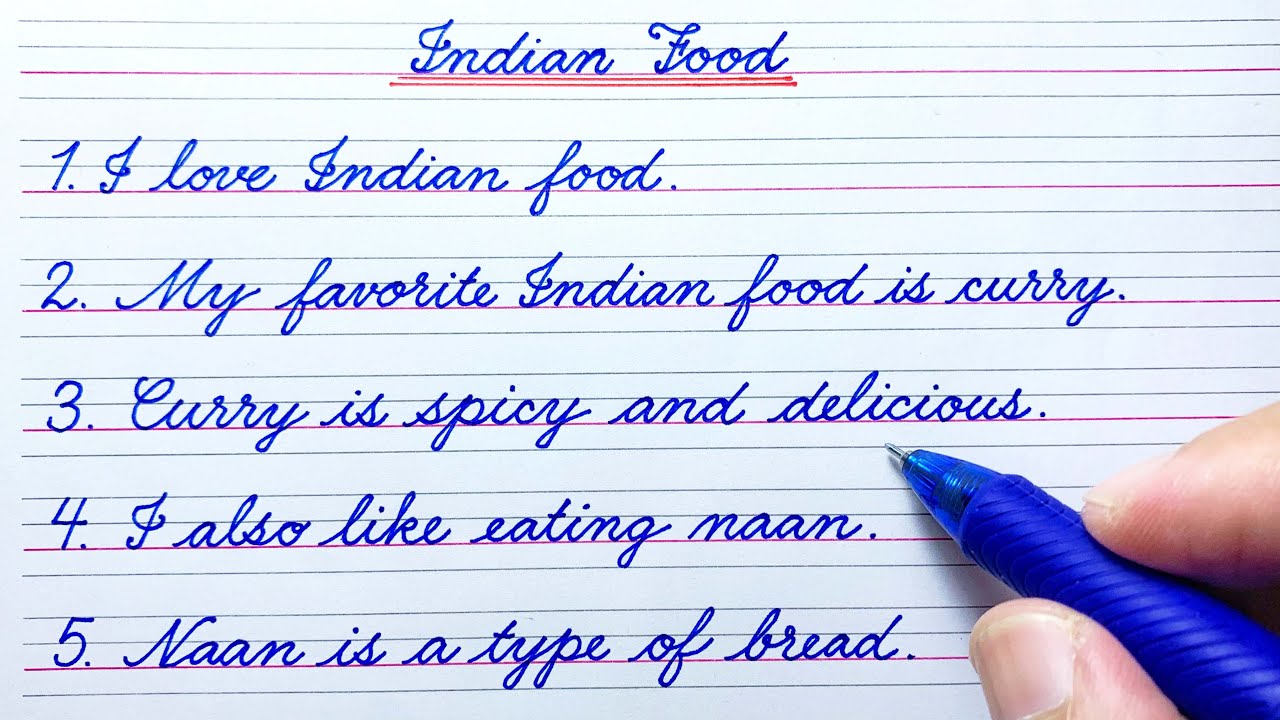 Indian Food
1. I love Indian food.
2. My favorite Indian food is curry.
3. Curry is spicy and delicious.
4. I also like eating naan.
5. Naan is a type of bread.